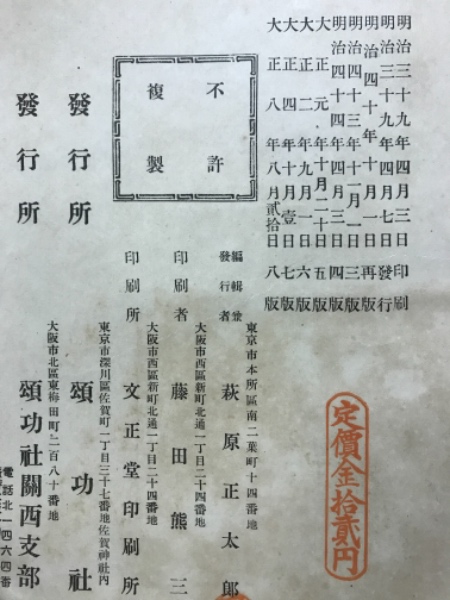 明治三十九年四月三日印刷
明治三十九年四月七日發行
明治四十年十月一日再版
明治四十三年十一月一日三版
明治四十四年四月三日四版
大正元年十月二十日五版
大正二年九月一日六版
大正四年十月壹日七版
大正八年八月貳拾日八版
不許
複製
定價金拾貳円
東京市本所區南二葉町十四番地
編輯兼
發行者
萩原正太郎
大阪市西區新町北通一丁目二十四番地
印刷者
藤田熊三
大阪市西區新町北通一丁目二十四番地
印刷所
文正堂印刷所
東京市深川區佐賀町一丁目三十七番地佐賀神社内
發行所
頌功社
大阪市北區東梅田町二百八十番地
發行所
頌功社關西支部
電話北一四六四番